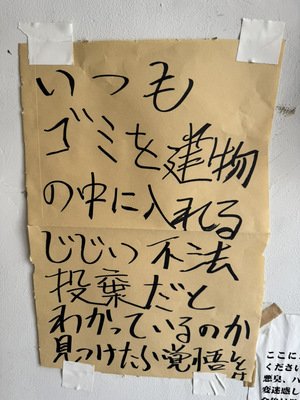 いつも
ゴミを建物
の中に入れる
じじい不法
投棄だと
わかっているのか
見つけたら覚悟しとけ
ここに
ください
悪臭、ハ
変迷惑し